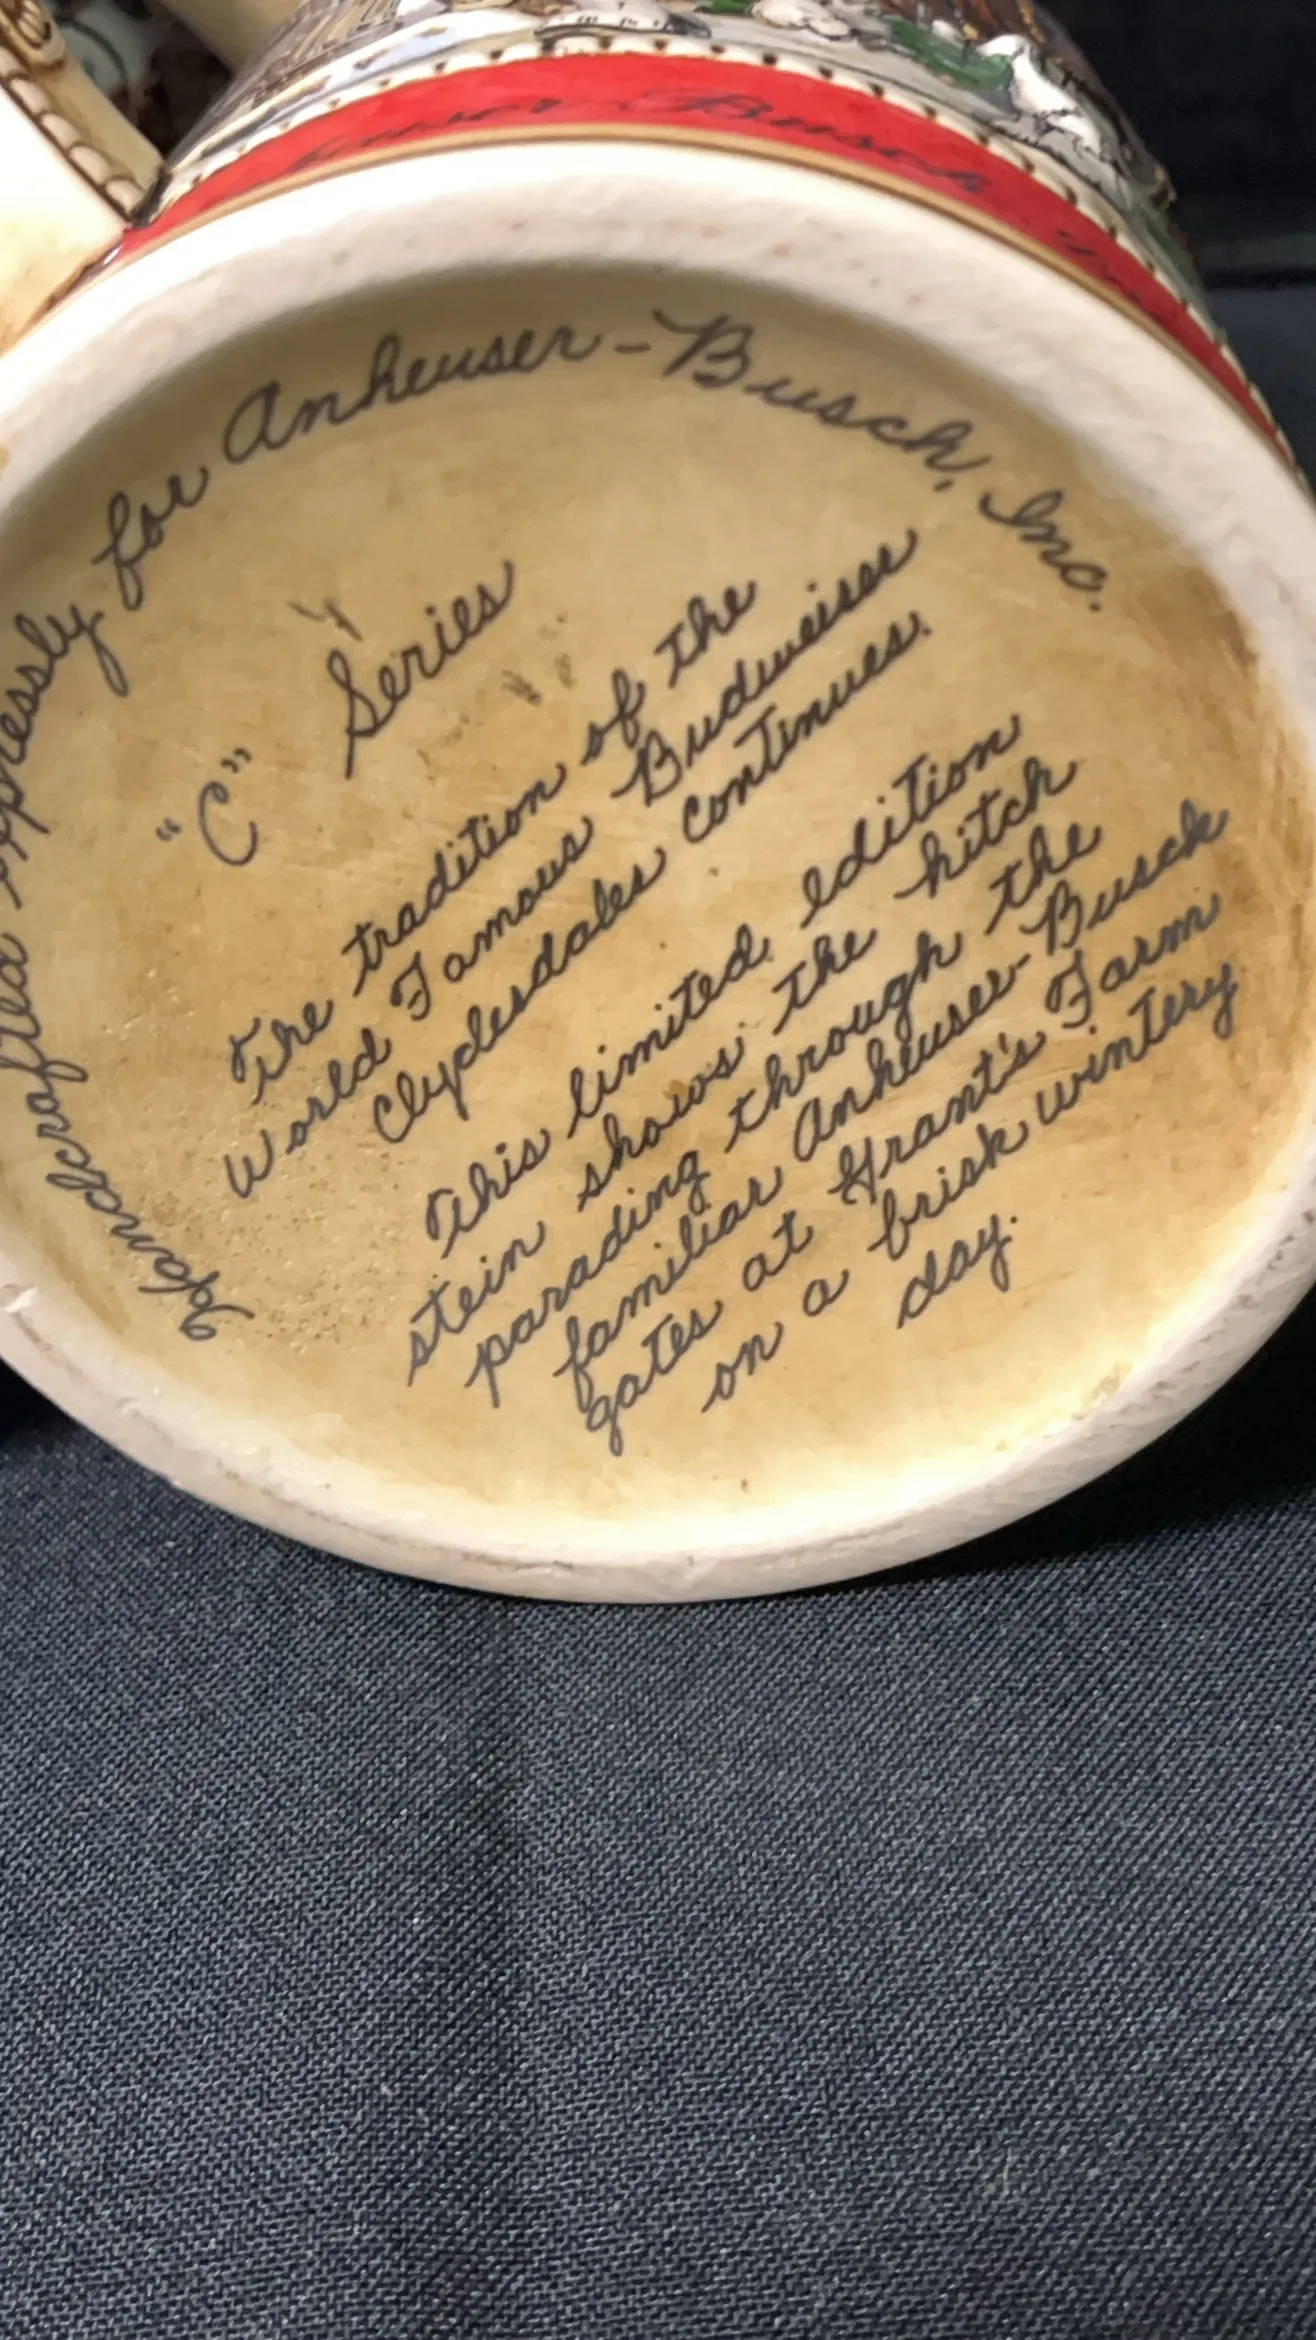 Handcrafted expressly for Anheuser-Busch, Inc.
"C" Series
The tradition of the
World Famous Budweiser
Clydesdales continues.
This limited edition
stein shows the hitch
parading through the
familiar Anheuser-Busch
gates at Grant's Farm
on a brisk wintery
day.
Busch